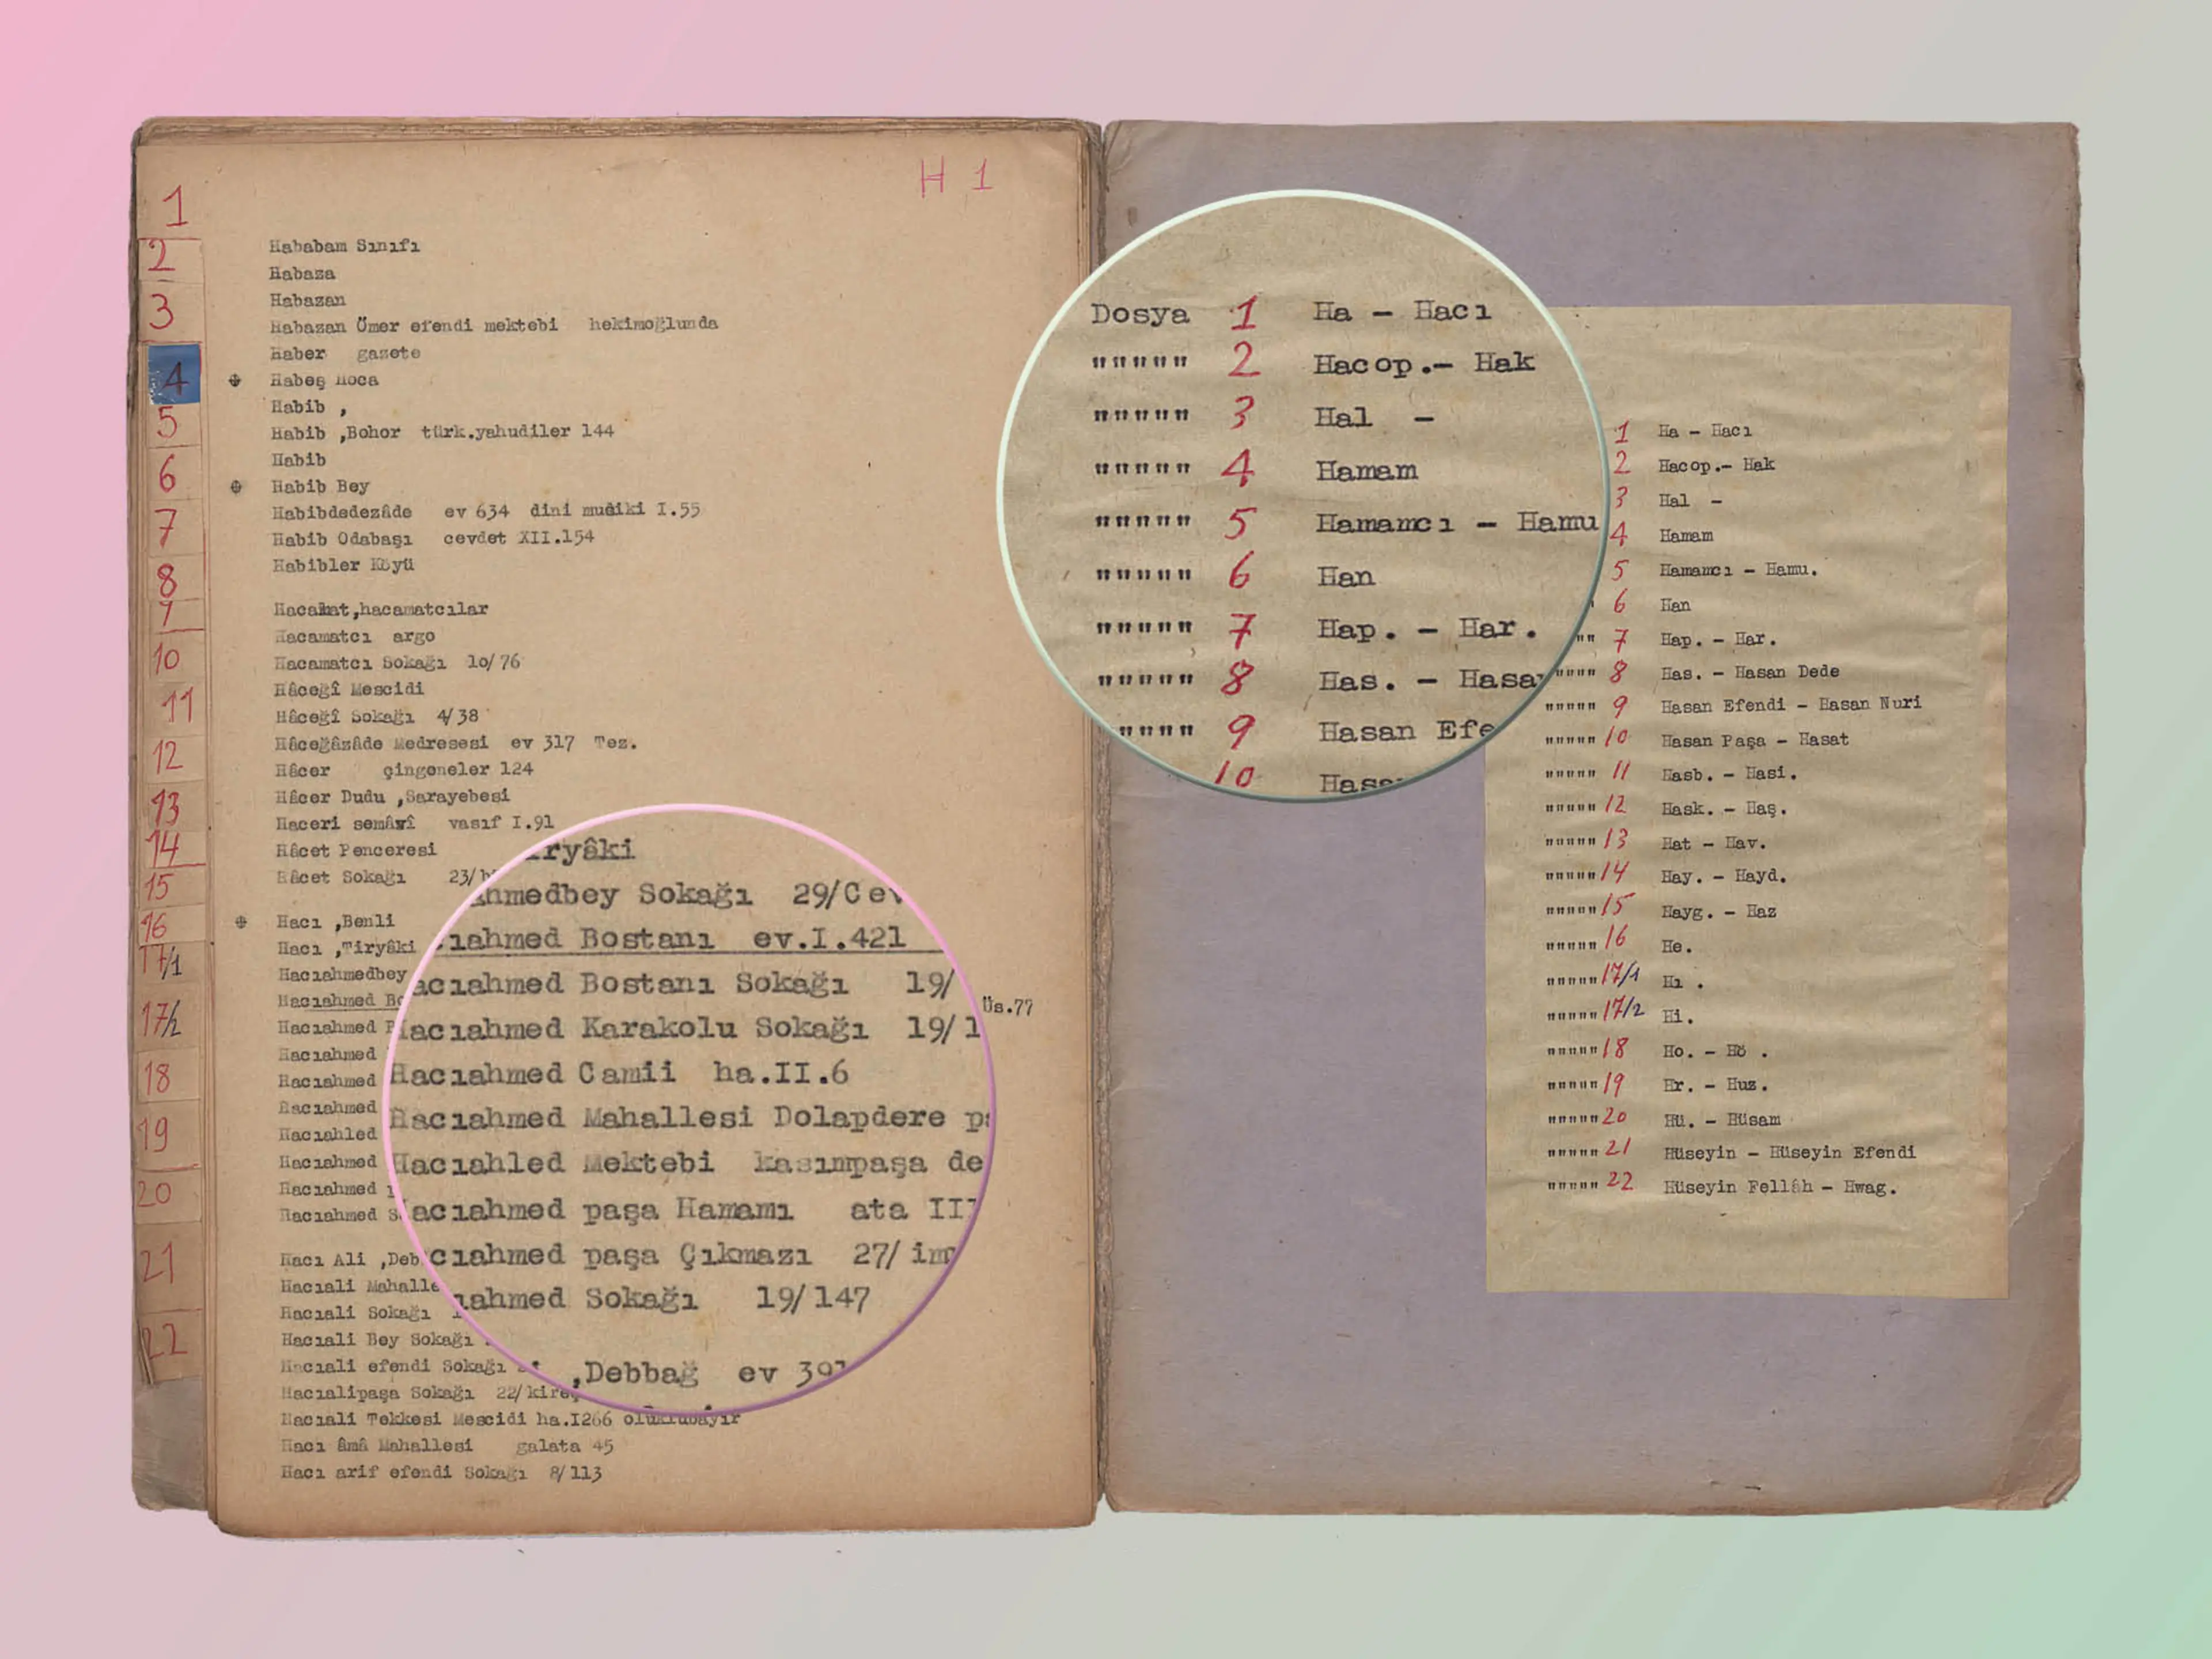 H 1
1
2
3
4
5
6
7
8
9
10
11
12
13
14
15
16
17/1
17/2
18
19
20
21
22
Hababam Sınıfı
Habaza
Habazan
Habazan Ömer efendi mektebi hekimoğlunda
Haber gazete
Habeş Hoca
Habib ,
Habib ,Bohor türk.yahudiler 144
Habib
Habib Bey
Habibdedezâde ev 634 dini musiki I.55
Habib Odabaşı cevdet XII.154
Habibler Köyü
Hacamat,hacamatcılar
Hacamatcı argo
Hacamatcı Sokağı 10/76
Hâceğî Mescidi
Hâceğî Sokağı 4/38
Hâceğâzâde Medresesi ev 317 Tez.
Hâcer çingeneler 124
Hâcer Dudu ,Sarayebesi
Haceri semâvî vasıf I.91
Hâcet Penceresi
Hâcet Sokağı 23/
Hacı ,Benli
Hacı ,Tiryâki
Hacıahmedbey
Hacıahmed Üs.77
Hacıahmed
Hacıahmed
Hacıahmed
Hacıahmed
Hacıahled
Hacıahmed
Hacıahmed
Hacıahmed
Hacı Ali ,Deb
Hacıali Mahalle
Hacıali Sokağı
Hacıali Bey Sokağı
Hacıali efendi Sokağı
Hacıalipaşa Sokağı 22/kire
Hacıali Tekkesi Mescidi ha.I266 oluklubayır
Hacı âmâ Mahallesi galata 45
Hacı arif efendi Sokağı 8/113
iryâki
hmedbey Sokağı 29/Cev
ıahmed Bostanı ev.I.421
acıahmed Bostanı Sokağı 19/
acıahmed Karakolu Sokağı 19/1
Hacıahmed Camii ha.II.6
Hacıahmed Mahallesi Dolapdere
Hacıahled Mektebi kasımpaşa de
acıahmed paşa Hamamı ata II
cıahmed paşa Çıkmazı 27/im
ıahmed Sokağı 19/147
,Debbağ ev 391
Dosya 1 Ha - Hacı
""""" 2 Hacop.- Hak
""""" 3 Hal -
""""" 4 Hamam
""""" 5 Hamamcı - Hamu
""""" 6 Han
""""" 7 Hap. - Har.
""""" 8 Has. - Hasa
"""" 9 Hasan Efe
10 Hasa
1 Ha - Hacı
2 Hacop.- Hak
3 Hal -
4 Hamam
5 Hamamcı - Hamu.
6 Han
"" 7 Hap. - Har.
"""" 8 Has. - Hasan Dede
""""" 9 Hasan Efendi - Hasan Nuri
""""" 10 Hasan Paşa - Hasat
""""" 11 Hasb. - Hasi.
""""" 12 Hask. - Haş.
""""" 13 Hat - Hav.
""""" 14 Hay. - Hayd.
""""" 15 Hayg. - Haz
""""" 16 He.
""""" 17/1 Hı .
""""" 17/2 Hi.
""""" 18 Ho. - Hö .
""""" 19 Hr. - Huz.
""""" 20 Hü. - Hüsam
""""" 21 Hüseyin - Hüseyin Efendi
""""" 22 Hüseyin Fellâh - Hwag.